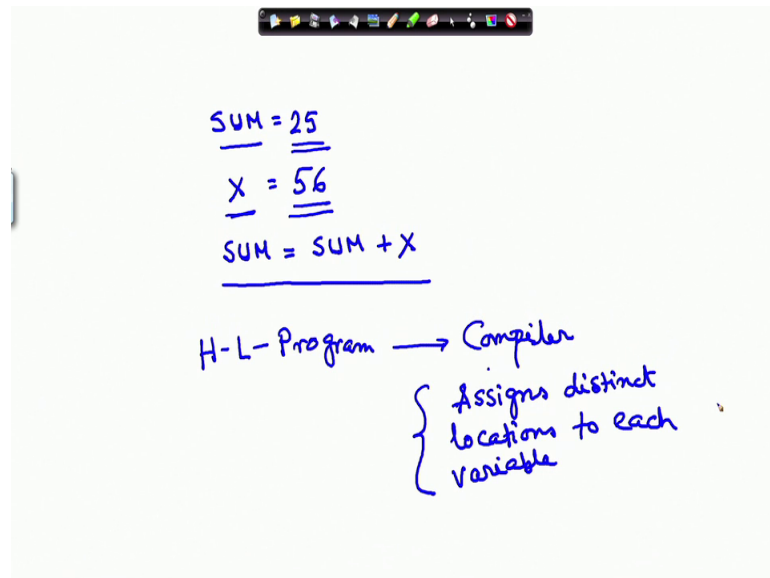 SUM = 25
X = 56
SUM = SUM + X
H-L-Program → Compiler
{ Assigns distinct
locations to each
variable